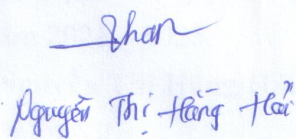 Nhan
Nguyễn Thị Hằng Hải